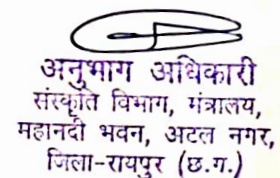 अनुभाग अधिकारी
संस्कृति विभाग, मंत्रालय,
महानदी भवन, अटल नगर,
जिला-रायपुर (छ.ग.)